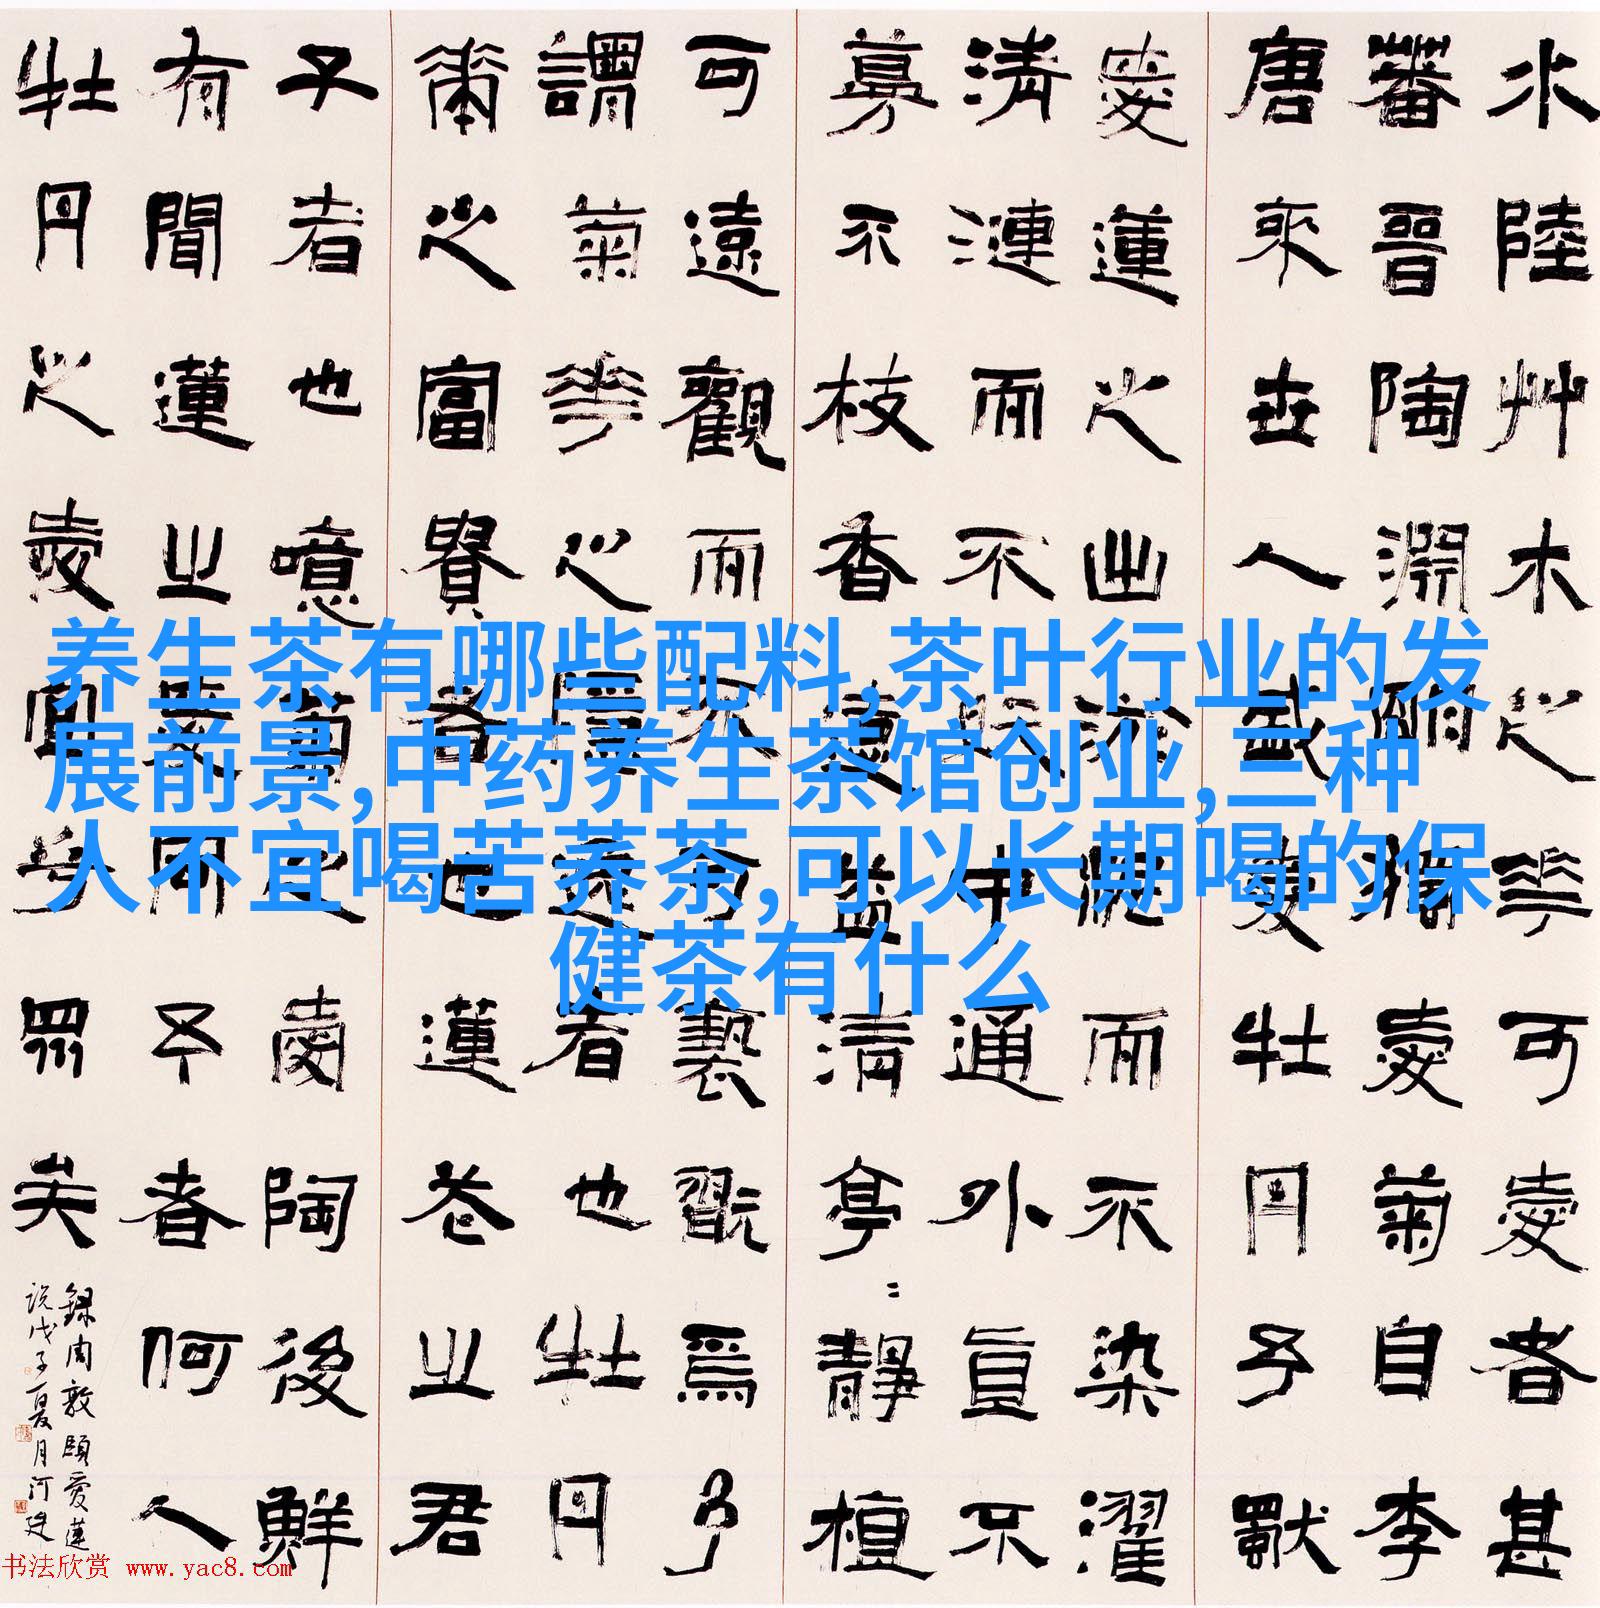 水陸艸木之華可愛者甚
蕃晉陶淵朙獨愛菊自李
唐來世人盛愛牡丹予獨
愛蓮之出淤泥而不染濯
清漣而不妖中通外直不
蔓不枝香遠益清亭〻靜植
可遠觀而不可褻翫焉予
謂菊華之隱逸者也牡丹
華之富貴者也蓮花之君
子者也噫菊之愛陶後鮮
有聞蓮之愛同予者何人
牡丹之愛宜乎眾矣
録周敦頤愛蓮
説戊子夏月河建
养生茶有哪些配料,茶叶行业的发
展前景,中药养生茶馆创业,三种
人不宜喝苦荞茶,可以长期喝的保
健茶有什么
书法欣赏 www.yac8.com